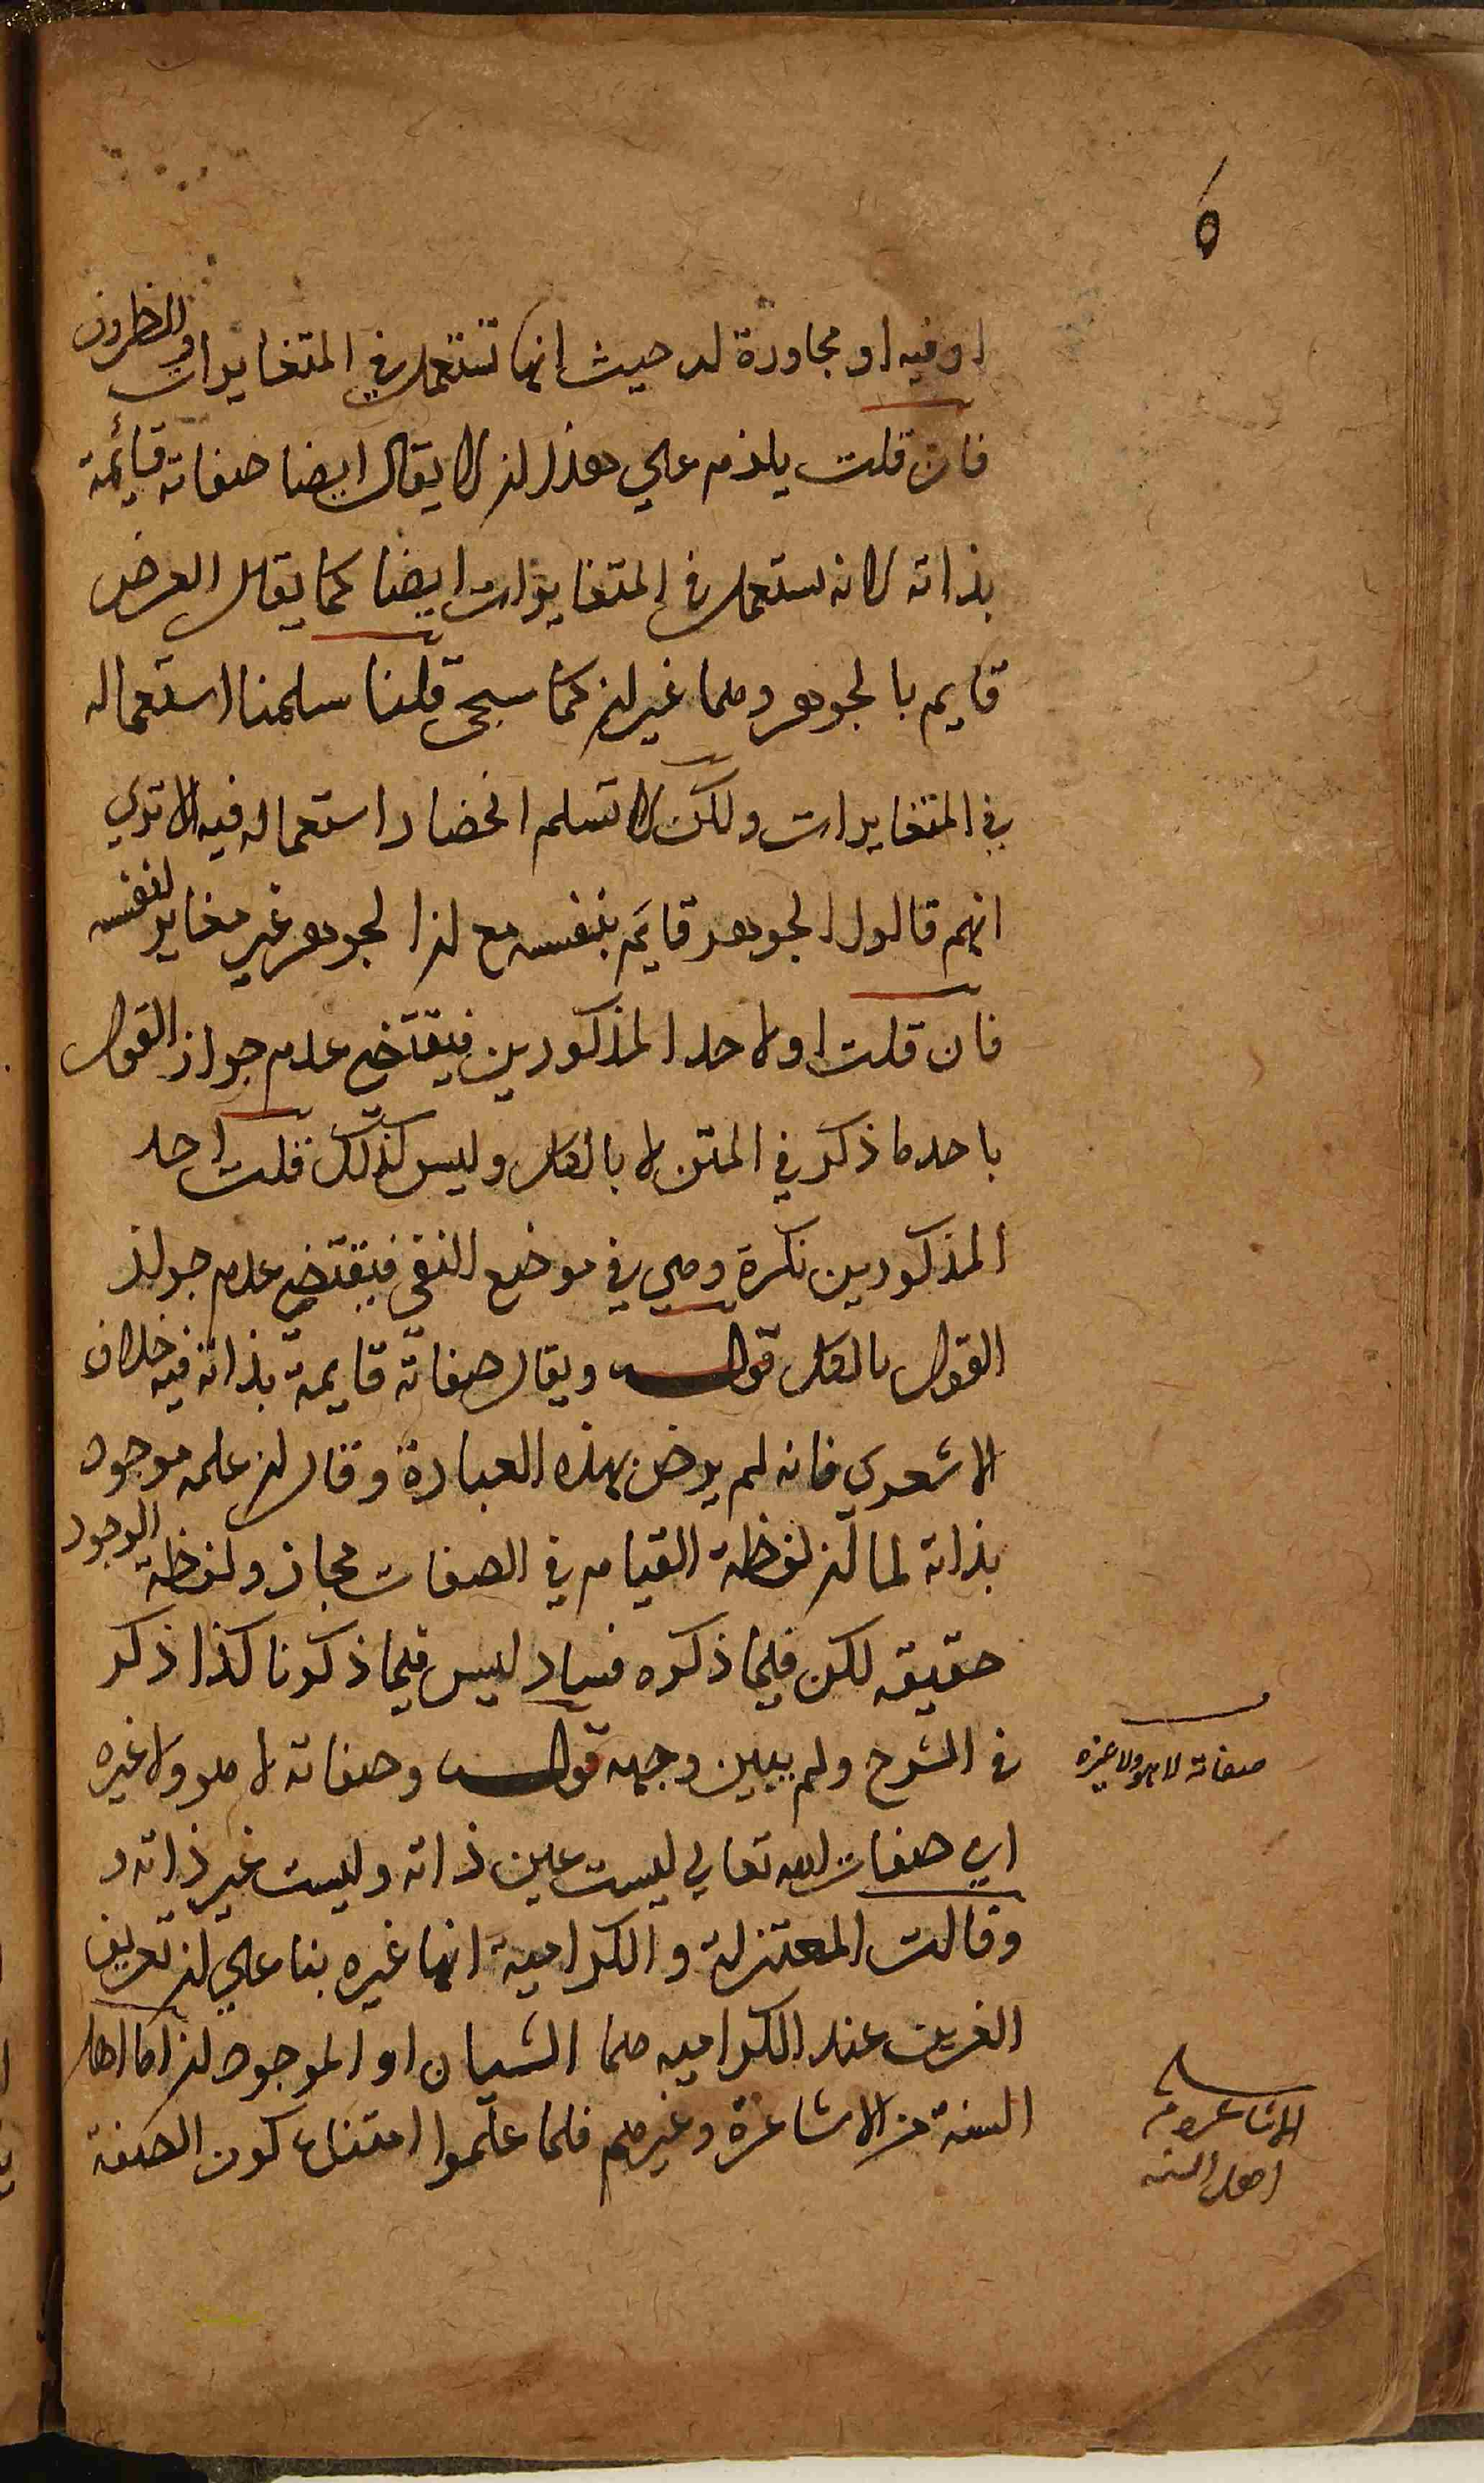 او فيه او مجاورة له حيث انها تستعمل في المتغايرات والظروف
فان قلت يلزم علي هذا ان لا يقال ايضا صفاته قائمة
بذاته لانه يستعمل في المتغايرات ايضا كما يقال العرض
قايم بالجوهر وهما غيران كما سيجئ قلنا سلمنا استعماله
في المتغايرات ولكن لا نسلم انحصار استعماله فيه الا تري
انهم قالوا الجوهر قايم بنفسه مع ان الجوهر غير مغاير لنفسه
فان قلت او لاحد المذكورين فيقتضي عدم جواز القول
باحد ما ذكر في المتن لا بالكل وليس كذلك قلت احد
المذكورين نكرة وهي في موضع النفي فيقتضي عدم جواز
القول بالكل قوله ويقال صفاته قايمة بذاته فيه خلاف
الاشعري فانه لم يرض بهذه العبارة وقال ان علمه موجود
بذاته لما ان لفظة القيام في الصفات مجاز ولفظة الوجود
حقيقه لكن فيما ذكره فساد ليس فيما ذكرنا كذا ذكر
في الشرح ولم يبين وجهه قوله وصفاته لا هو ولا غيره
اي صفات الله تعالي ليست عين ذاته وليست غير ذاته و
وقالت المعتزلة والكرامية انها غيره بنا علي ان تعريف
الغيرين عند الكراميه هما الشيان او الموجودان اما اهل
السنة من الاشاعرة وغيرهم فلما علموا امتناع كون الصفة
صفاته لا هو ولا غيره
الاشاعرة من
اهل السنه